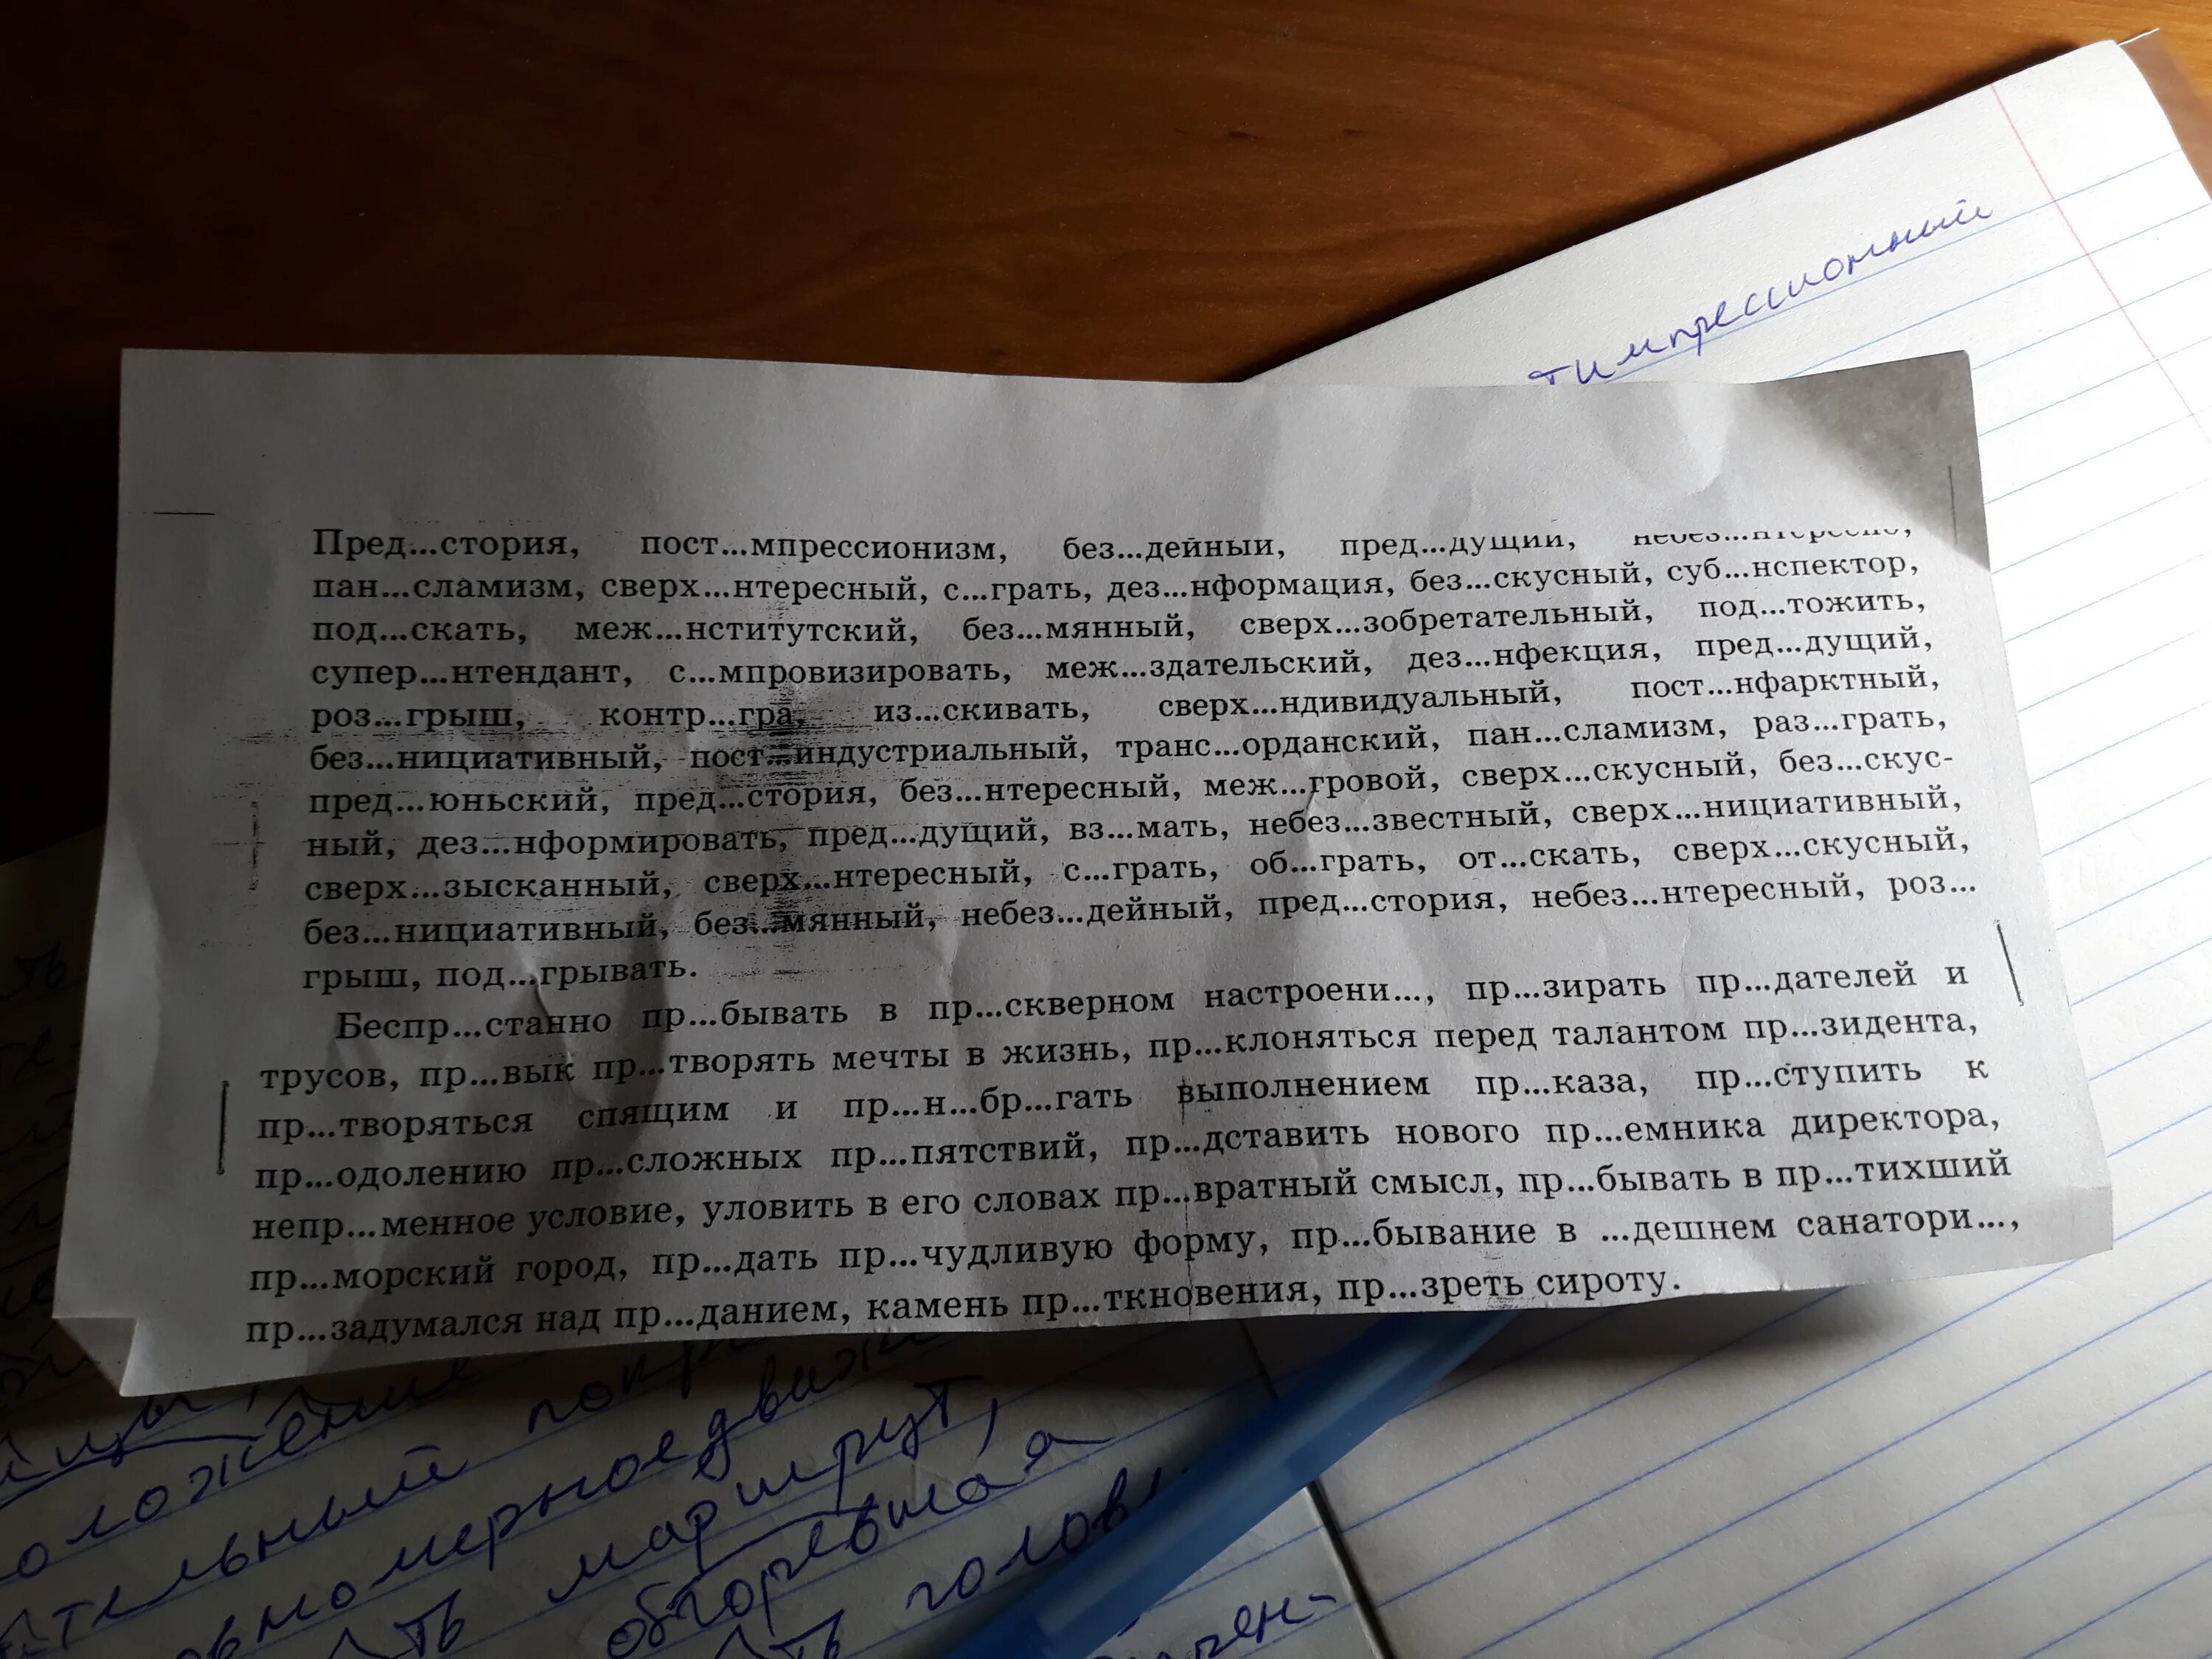 тимпрессионный
Пред...стория, пост...мпрессионизм, без...дейный, пред...дущий,
пан...сламизм, сверх...нтересный, с...грать, дез...нформация, без...скусный, суб...нспектор,
под...скать, меж...нститутский, без...мянный, сверх...зобретательный, под...тожить,
супер...нтендант, с...мпровизировать, меж...здательский, дез...нфекция, пред...дущий,
роз...грыш, контр...гра, из...скивать, сверх...ндивидуальный, пост...нфарктный,
без...нициативный, пост...индустриальный, транс...орданский, пан...сламизм, раз...грать,
пред...юньский, пред...стория, без...нтересный, меж...гровой, сверх...скусный, без...скус-
ный, дез...нформировать, пред...дущий, вз...мать, небез...звестный, сверх...нициативный,
сверх...зысканный, сверх...нтересный, с...грать, об...грать, от...скать, сверх...скусный,
без...нициативный, без...мянный, небез...дейный, пред...стория, небез...нтересный, роз...
грыш, под...грывать.
Беспр...станно пр...бывать в пр...скверном настроени..., пр...зирать пр...дателей и
трусов, пр...вык пр...творять мечты в жизнь, пр...клоняться перед талантом пр...зидента,
пр...творяться спящим и пр...н...бр...гать выполнением пр...каза, пр...ступить к
пр...одолению пр...сложных пр...пятствий, пр...дставить нового пр...емника директора,
непр...менное условие, уловить в его словах пр...вратный смысл, пр...бывать в пр...тихший
пр...морский город, пр...дать пр...чудливую форму, пр...бывание в ...дешнем санатори...,
пр...задумался над пр...данием, камень пр...ткновения, пр...зреть сироту.
маршрут,
обгоревшая